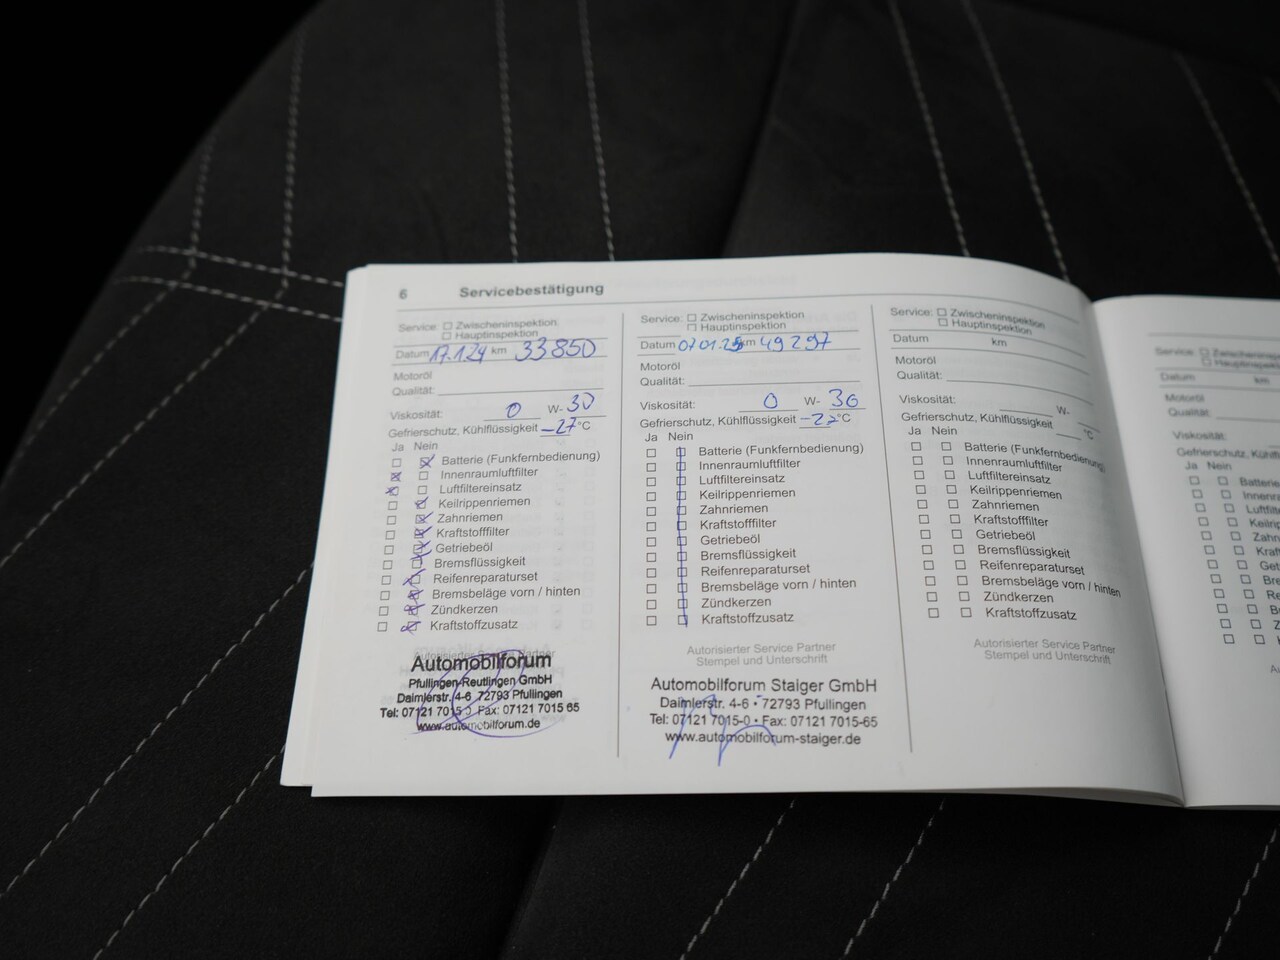 6 Servicebestätigung
Service: Zwischeninspektion
Hauptinspektion
Datum 17.1.24 km 33850
Motoröl
Qualität:
Viskosität: 0 W- 30
Gefrierschutz, Kühlflüssigkeit -27°C
Ja Nein
Batterie (Funkfernbedienung)
Innenraumluftfilter
Luftfiltereinsatz
Keilrippenriemen
Zahnriemen
Kraftstofffilter
Getriebeöl
Bremsflüssigkeit
Reifenreparaturset
Bremsbeläge vorn / hinten
Zündkerzen
Kraftstoffzusatz
Autorisierter Service Partner
Automobilforum
Pfullingen-Reutlingen GmbH
Daimlerstr. 4-6 72793 Pfullingen
Tel: 07121 7015 0 Fax: 07121 7015 65
www.automobilforum.de
Service: Zwischeninspektion
Hauptinspektion
Datum 07.01.25 km 49297
Motoröl
Qualität:
Viskosität: 0 W- 30
Gefrierschutz, Kühlflüssigkeit -27°C
Ja Nein
Batterie (Funkfernbedienung)
Innenraumluftfilter
Luftfiltereinsatz
Keilrippenriemen
Zahnriemen
Kraftstofffilter
Getriebeöl
Bremsflüssigkeit
Reifenreparaturset
Bremsbeläge vorn / hinten
Zündkerzen
Kraftstoffzusatz
Autorisierter Service Partner
Stempel und Unterschrift
Automobilforum Staiger GmbH
Daimlerstr. 4-6 • 72793 Pfullingen
Tel: 07121 7015-0 • Fax: 07121 7015-65
www.automobilforum-staiger.de
Service: Zwischeninspektion
Hauptinspektion
Datum km
Motoröl
Qualität:
Viskosität: W-
Gefrierschutz, Kühlflüssigkeit °C
Ja Nein
Batterie (Funkfernbedienung)
Innenraumluftfilter
Luftfiltereinsatz
Keilrippenriemen
Zahnriemen
Kraftstofffilter
Getriebeöl
Bremsflüssigkeit
Reifenreparaturset
Bremsbeläge vorn / hinten
Zündkerzen
Kraftstoffzusatz
Autorisierter Service Partner
Stempel und Unterschrift
Service: Zwischeninspektion
Hauptinspektion
Datum km
Motoröl
Qualität:
Viskosität:
Gefrierschutz, Kühlfl
Ja Nein
Batterie
Innen
Luftfil
Keilrip
Zahn
Kraft
Get
Br
Re
B
Z
K
Au